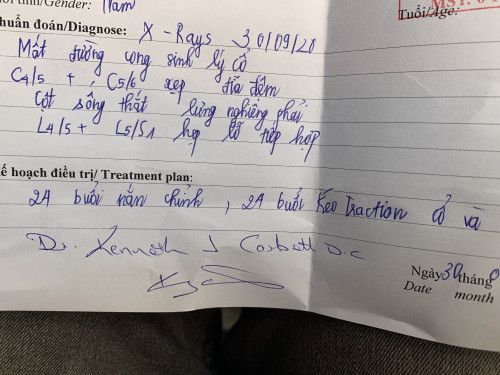 Gender: Nam
Tuổi/Age:
huẩn đoán/Diagnose: X-Rays 30/09/20
Mất đường cong sinh lý cổ
C4/5 + C5/6 xẹp đĩa đệm
Cột sống thắt lưng nghiêng phải
L4/5 + L5/S1 hẹp lỗ tiếp hợp
ế hoạch điều trị/ Treatment plan:
24 buổi nắn chỉnh, 24 buổi kéo Traction cổ và
Dr. Kenneth J Corbett D.C
Ngày 30 tháng
Date month